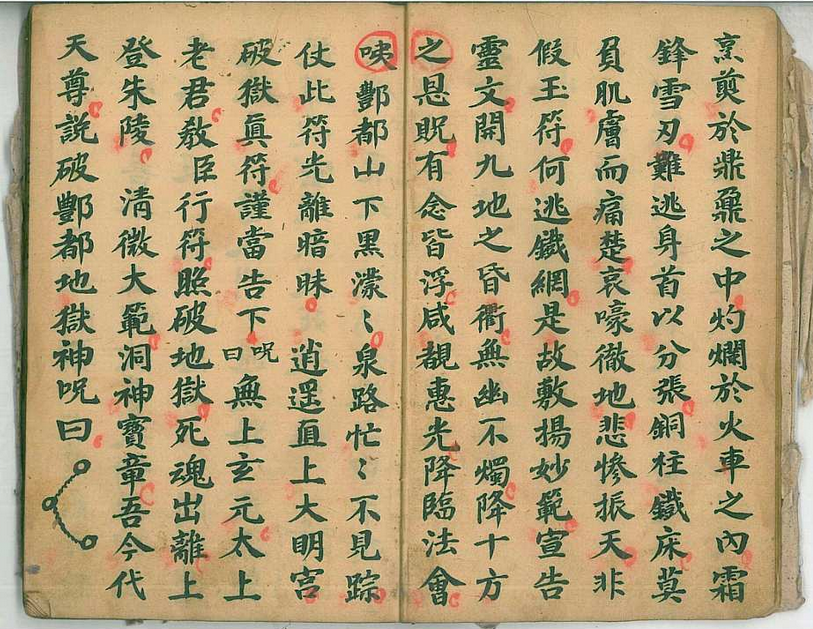 烹煎於鼎鼐之中灼爛於火車之內霜
鋒雪刃難逃身首以分張銅柱鐵床莫
負肌膚而痛楚哀嚎徹地悲慘振天非
假玉符何逃鐵網是故敷揚妙範宣告
靈文開九地之昏衢無幽不燭降十方
之恩貺有念皆浮咸覩惠光降臨法會
咦酆都山下黑濛〻泉路忙〻不見踪
仗此符光離暗昧　逍遥直上大明宮
破獄眞符謹當告下呪曰無上玄元太上
老君敎臣行符照破地獄死魂出離上
登朱陵　清微大範洞神寶章吾今代
天尊説破酆都地獄神呪曰